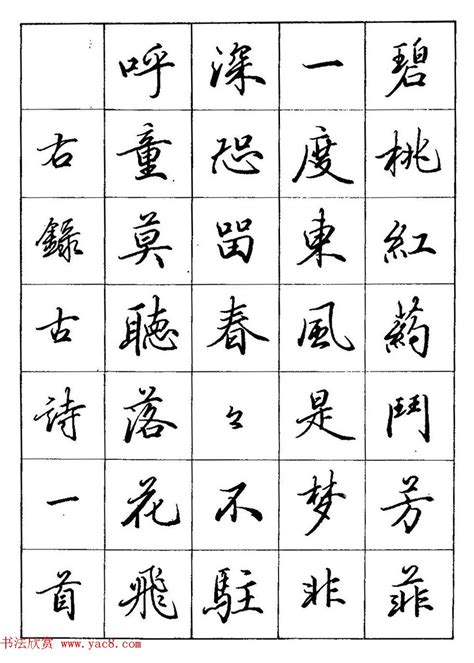 碧桃紅葯鬥芳菲
一度東風是梦非
深恐留春〻不駐
呼童莫聴落花飛
右錄古詩一首
书法欣赏 www.yac8.com